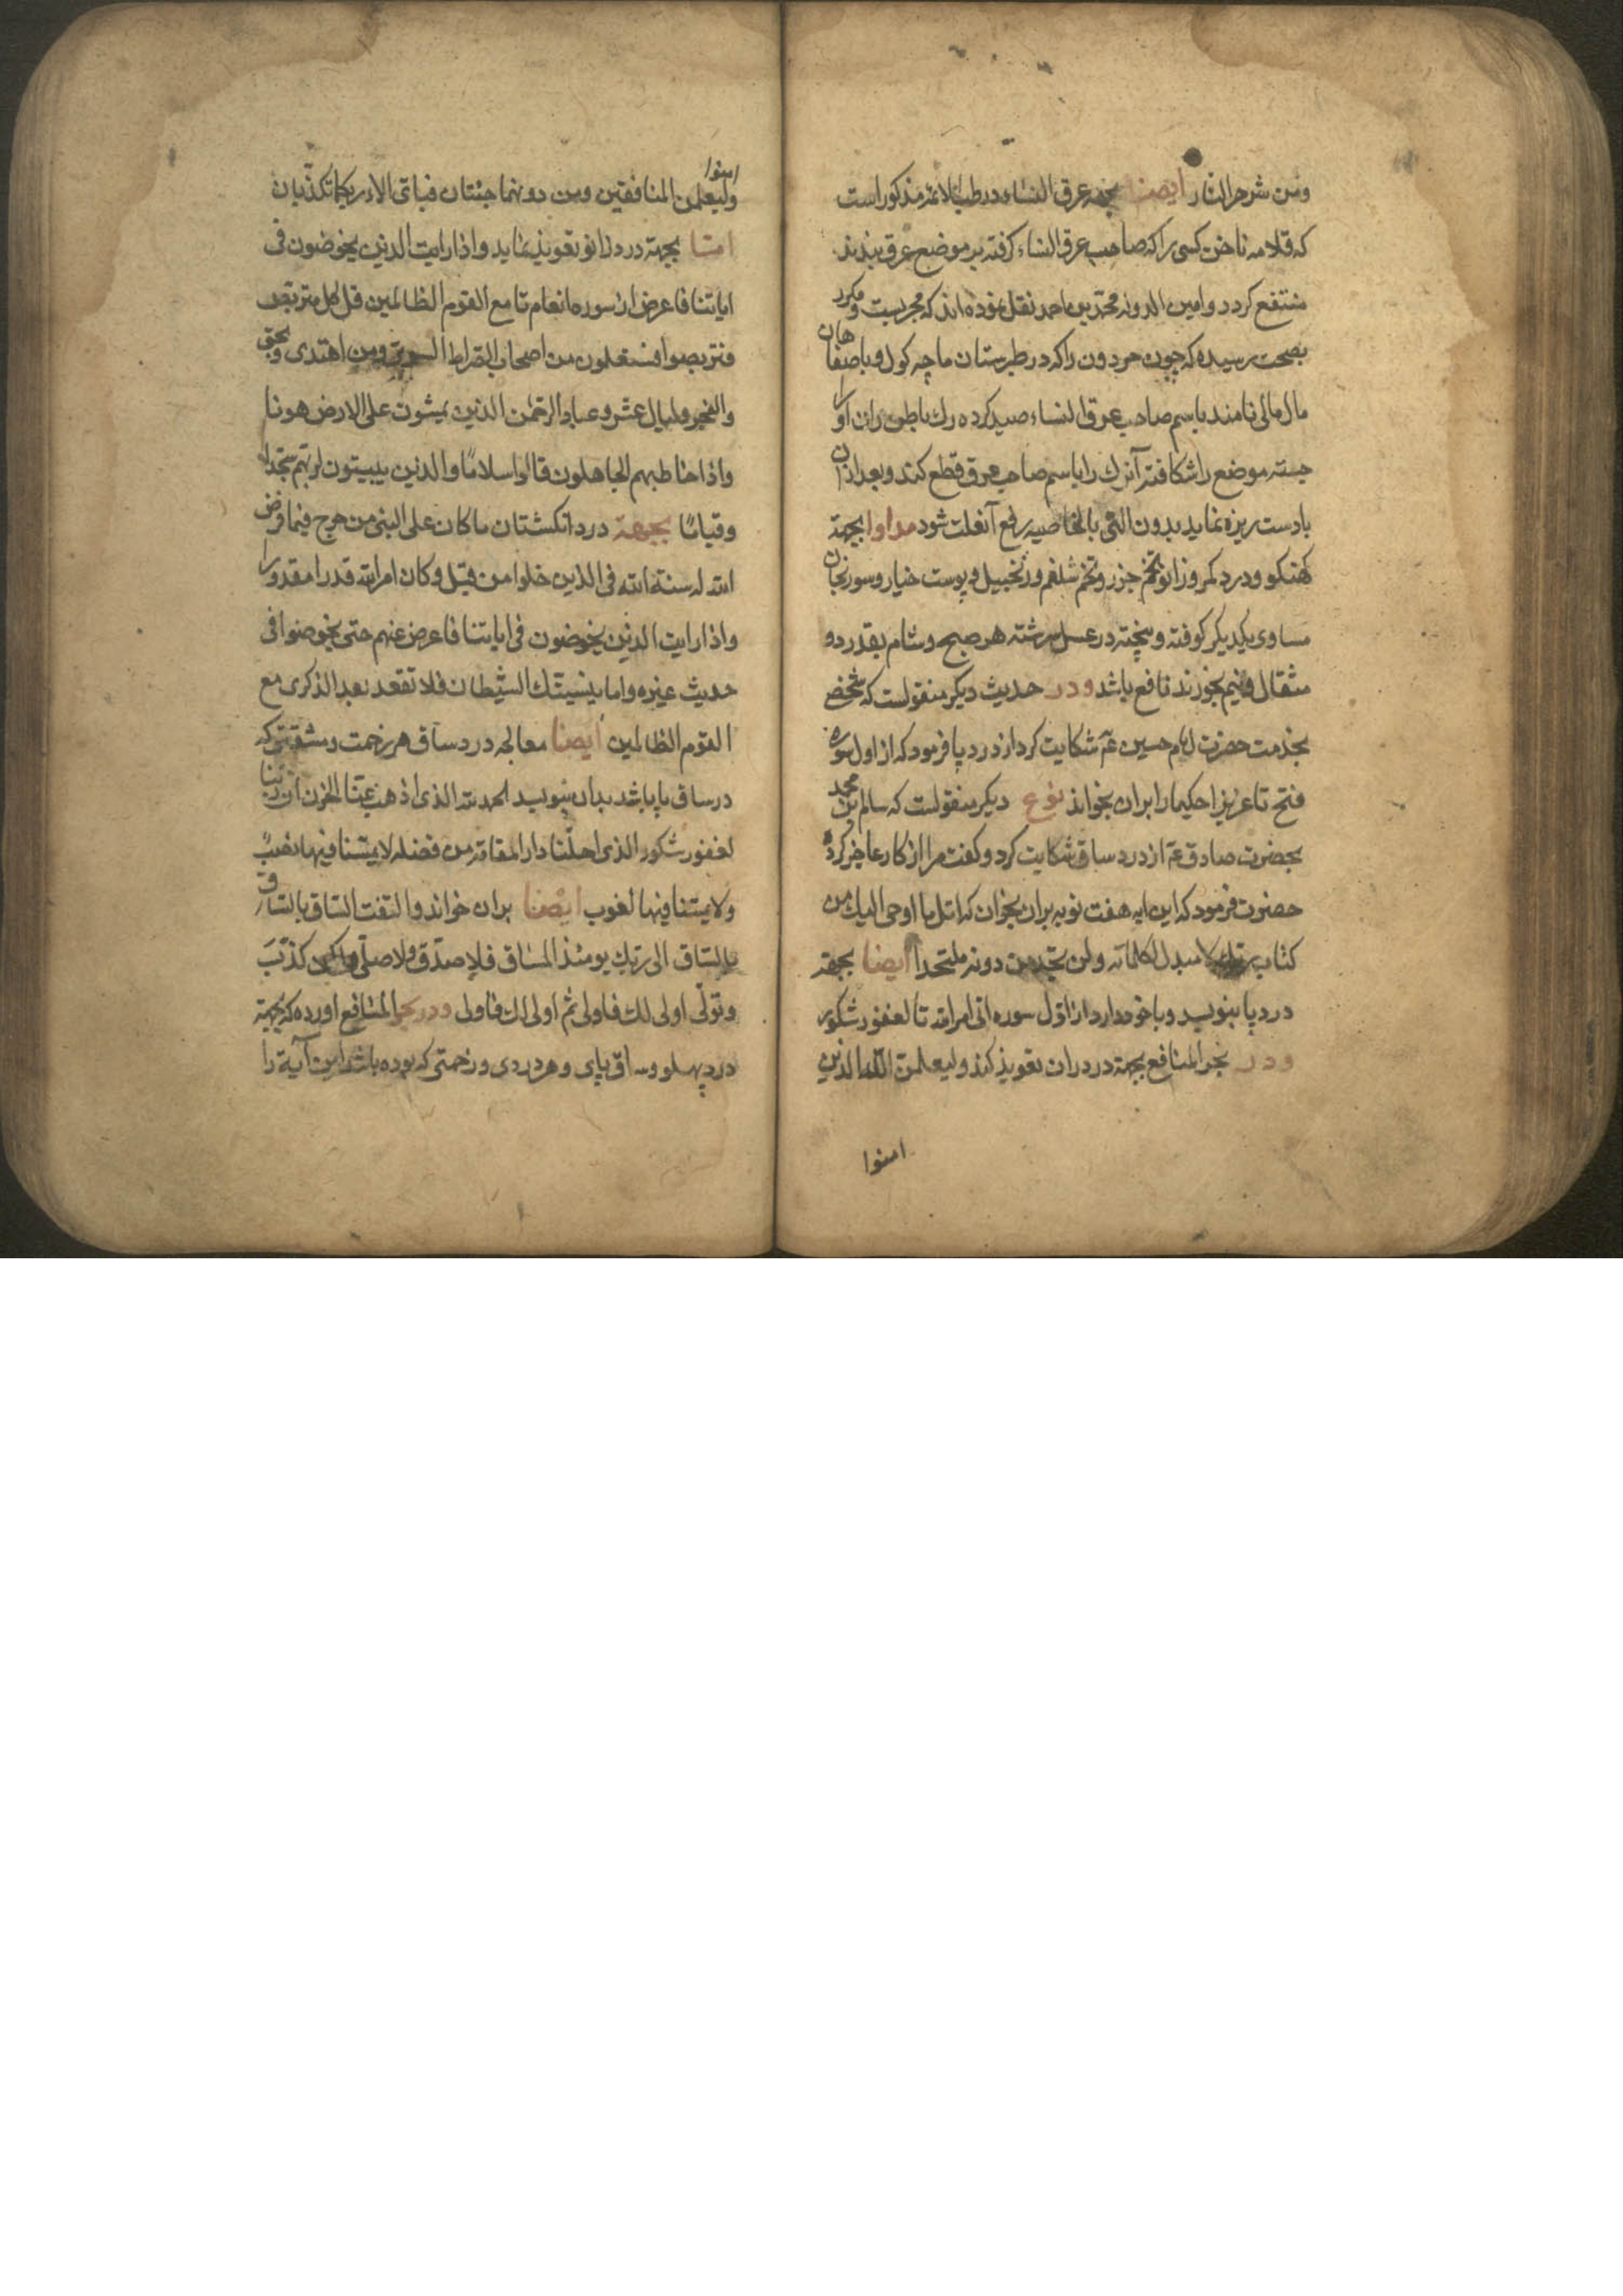 ومن شر حر النار ایضا بجهه عرق النساء در طب الائمه مذکور است
که قلامه ناخن کسی را که صاحب عرق النساء کرفته بر موضع عرق بندند
منتفع کردد و امین الدوله محمد بن احمد نقل نموده اند که مجربست و مکرر
بصحت رسیده که چون حردون را که در طبرستان ماچه کول و باصفاهان
مال مالی نامند باسم صاحب عرق النساء صید کرده رک باطن ران او را
جسته موضع را شکافته آنرک را باسم صاحب عرق قطع کند و بعد از آن
بادست ریزه نماید بدون التی بالخاصیه رفع آنعلت شود مداوا بجهة
کهنکو و درد کمر و زانو تخم جزر و تخم شلغم و زنجبیل و پوست خیار و سورنجان
مساوی یکدیکر کوفته و بیخته در عسل سرشته هر صبح و شام بقدر دو
مثقال و نیم بخورند نافع باشد و در حدیث دیکر منقولست که شخص
بخدمت حضرت امام حسین عم شکایت کرد از درد پا فرمود که از اول سوره
فتح تا عزیزا حکیما را بران بخواند نوع دیکر منقولست که سالم بن محمد
بحضرت صادق عم از درد ساق شکایت کرد و کفت مرا از کار عاجز کرده
حضرت فرمود که این ایه هفت نوبه بران بخوان که اتل ما اوحی الیک من
کتاب ربک لا مبدل لکلماته ولن تجد من دونه ملتحدا ایضا بجهة
درد پا بنویسد و با خود دارد از اول سوره اتی امر الله تا لغفور شکور
و در بحر المنافع بجهة درد ران تعویذ کند ولیعلمن الله الذین
امنوا
امنوا
ولیعلمن المنافقین ومن دونهما جنتان فبای الاء ربکما تکذبان
امتا بجهة درد زانو تعویذ نماید واذا رایت الذین یخوضون فی
ایاتنا فاعرض از سوره انعام تا مع القوم الظالمین قل کل متربص
فتربصوا فستعلمون من اصحاب الصراط السوی ومن اهتدی وبحق
والفجر ولیال عشر وعباد الرحمن الذین یمشون علی الارض هونا
واذا خاطبهم الجاهلون قالوا سلامًا والذین یبیتون لربهم سجدا
وقیامًا بجهة درد انکشتان ما کان علی النبی من حرج فیما فرض
الله له سنة الله فی الذین خلوا من قبل وکان امر الله قدرا مقدورا
واذا رایت الذین یخوضون فی ایاتنا فاعرض عنهم حتی یخوضوا فی
حدیث غیره واما ینسینک الشیطان فلا تقعد بعد الذکری مع
القوم الظالمین ایضا معالجه درد ساق هر زحمت و مشقتی که
در ساق پا باشد بدان بنویسد الحمد لله الذی اذهب عنا الحزن ان ربنا
لغفور شکور الذی احلّنا دار المقامة من فضله لا یمسّنا فیها نصبٌ
ولا یمسنا فیها لغوب ایضا بران خواند والتفت الساق بالساق
بالساق الی ربک یومئذ المساق فلا صدّق ولا صلّی ولکن کذّبَ
وتولّی اولی لک فاولی ثم اولی لک فاولی و در بحر المنافع اورده که بجهة
درد پهلو و ساق پای و هر دردی و زحمتی که بوده باشد این آیة را